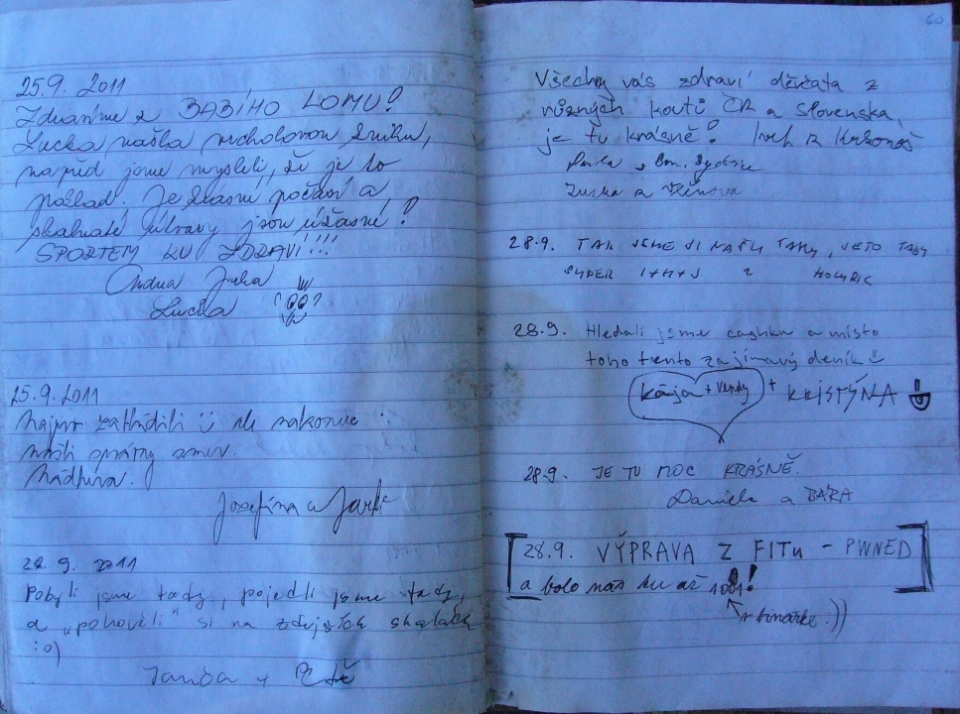 25.9. 2011
Zdravíme z BABÍHO LOMU!
Lucka našla vrcholovou knihu,
napřed jsme mysleli, že je to
poklad. Je krásné počasí a
skalnaté útvary jsou úžasné!
SPORTEM KU ZDRAVÍ!!!
Ondra Jirka
Lucka
25.9.2011
Nejprv zabloudili ale nakonec
našli správný směr.
Nádhera.
Josefína a
28. 9. 2011
Pobyli jsme tady, pojedli jsme tady,
a „pohověli" si na zdejších skalách
:o)
Janča +
60
Všechny vás zdraví děvčata z
různých koutů ČR a Slovenska,
je tu krásně!
Zuzka a
28.9. TAK JSME SI NAŠLI TADY,
SUPER
28.9. Hledali jsme cashku a místo
toho tento zajímavý deník
Kája + Vendy + KRISTÝNA
28.9. JE TU MOC KRÁSNĚ.
Daniela a BÁRA
28.9. VÝPRAVA Z FITu - PWNED
a bolo nás tu až 1001!
v binárke :))